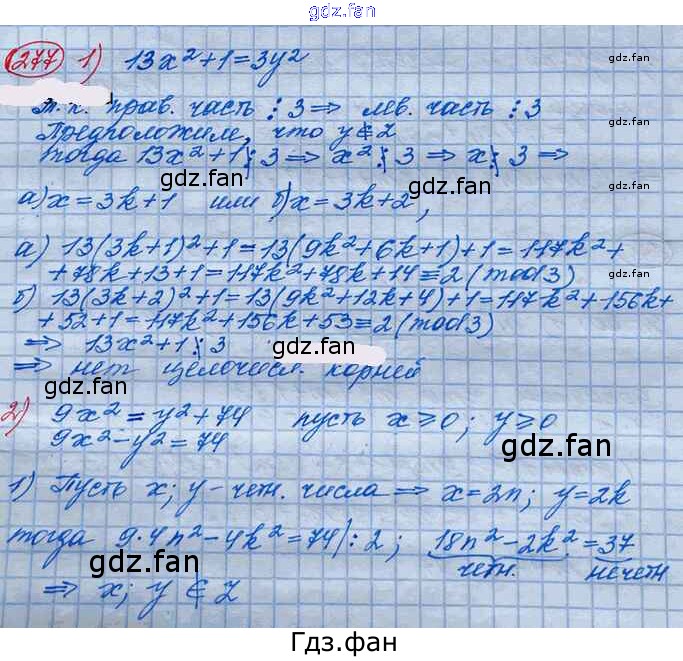 gdz.fan
277 1) 13x²+1=3y²
gdz.fan
т.к. прав. часть ⋮ 3 ⇒ лев. часть ⋮ 3
Предположим, что y∉Z
тогда 13x²+1⋮3 ⇒ x²⋮̸3 ⇒ x⋮̸3 ⇒
gdz.fan
gdz.fan
а) x=3k+1 или б) x=3k+2,
а) 13(3k+1)²+1=13(9k²+6k+1)+1=117k²+
+78k+13+1=117k²+78k+14≡2(mod3)
б) 13(3k+2)²+1=13(9k²+12k+4)+1=117k²+156k+
+52+1=117k²+156k+53≡2(mod3)
⇒ 13x²+1⋮̸3
gdz.fan
⇒ нет целочисл. корней
gdz.fan
2) 9x²=y²+74 пусть x⩾0; y⩾0
9x²-y²=74
gdz.fan
1) Пусть x; y - четн. числа ⇒ x=2n; y=2k
тогда 9·4n²-4k²=74|:2; 18n²-2k²=37
gdz.fan
четн. нечетн
⇒ x; y ∉ Z
gdz.fan
Гдз.фан